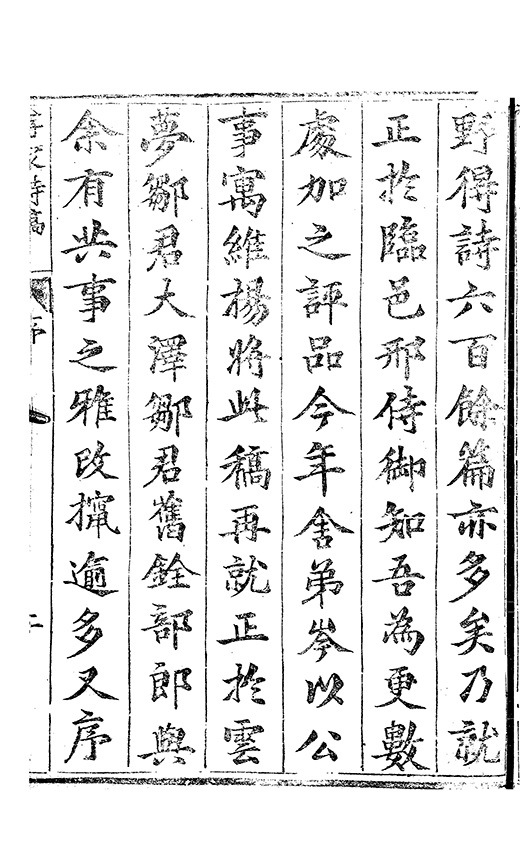 野得詩六百餘篇亦多矣乃就
正於臨邑邢侍御知吾為更數
處加之評品今年舍弟岑以公
事寓維揚將此稿再就正於雲
夢鄒君大澤鄒君舊銓部郎與
余有共事之雅改攛逾多又序
詩稿
序
二